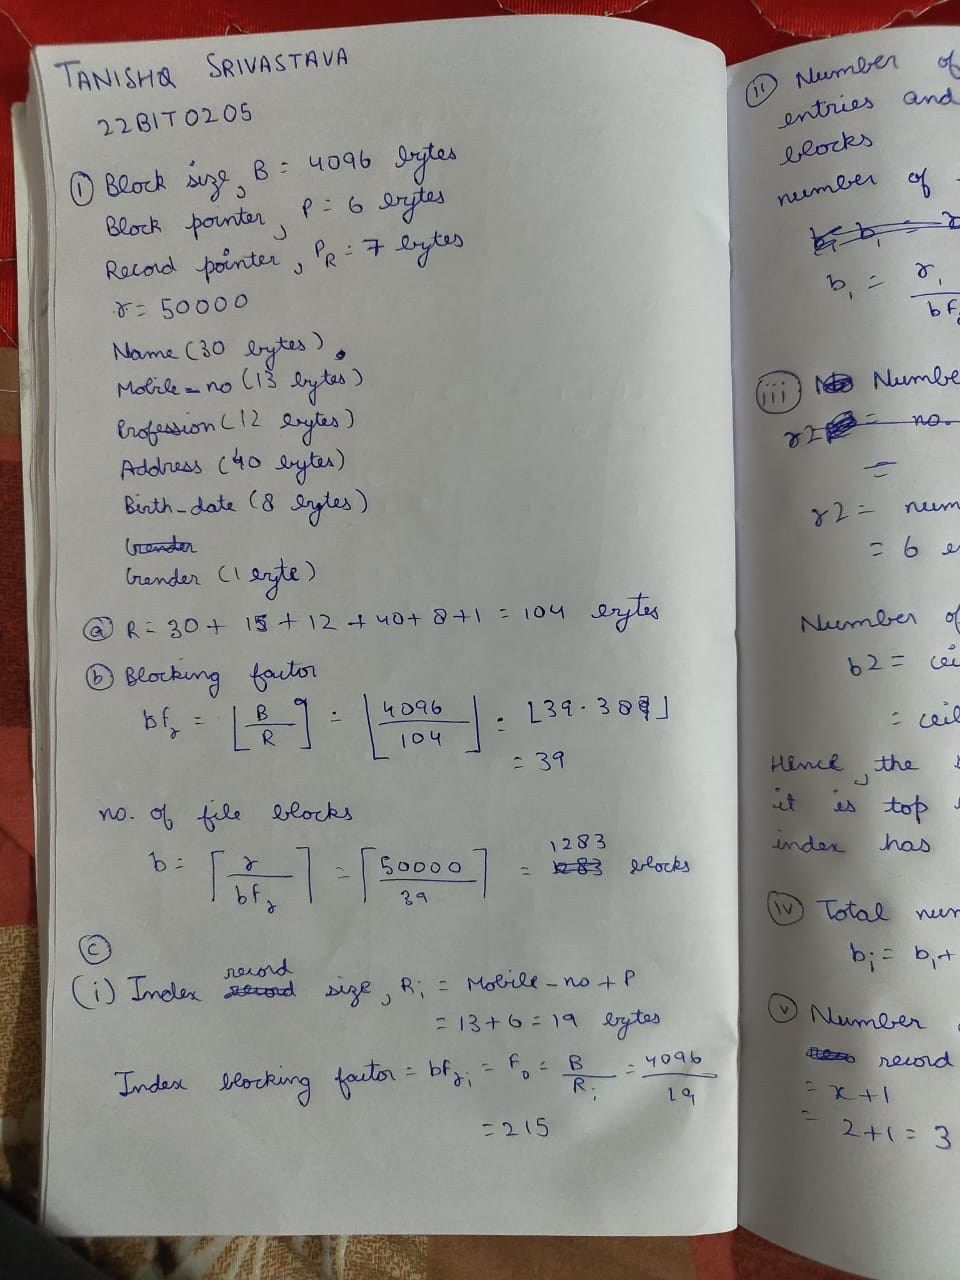 TANISHQ SRIVASTAVA
22BIT0205
① Block size, B = 4096 bytes
Block pointer, P = 6 bytes
Record pointer, P_R = 7 bytes
r = 50000
Name (30 bytes)
Mobile-no (13 bytes)
Profession (12 bytes)
Address (40 bytes)
Birth-date (8 bytes)
Gender
Gender (1 byte)
ⓐ R = 30 + 13 + 12 + 40 + 8 + 1 = 104 bytes
ⓑ Blocking factor
bfr = ⌊B/R⌋ = ⌊4096/104⌋ = ⌊39.38⌋
= 39
no. of file blocks
b = ⌈r/bfr⌉ = ⌈50000/39⌉ = 1283 blocks
ⓒ
(i) Index record size, Ri = Mobile-no + P
= 13 + 6 = 19 bytes
Index blocking factor = bfri = fo = B/Ri = 4096/19
= 215
(ii) Number of
entries and
blocks
number of
b1 = r1/bf
(iii) Numbe
r2 = no.
=
r2 = num
= 6 e
Number of
b2 = cei
= ceil
Hence, the
it is top
index has
(iv) Total num
bi = b1 +
(v) Number
record
= x + 1
= 2 + 1 = 3